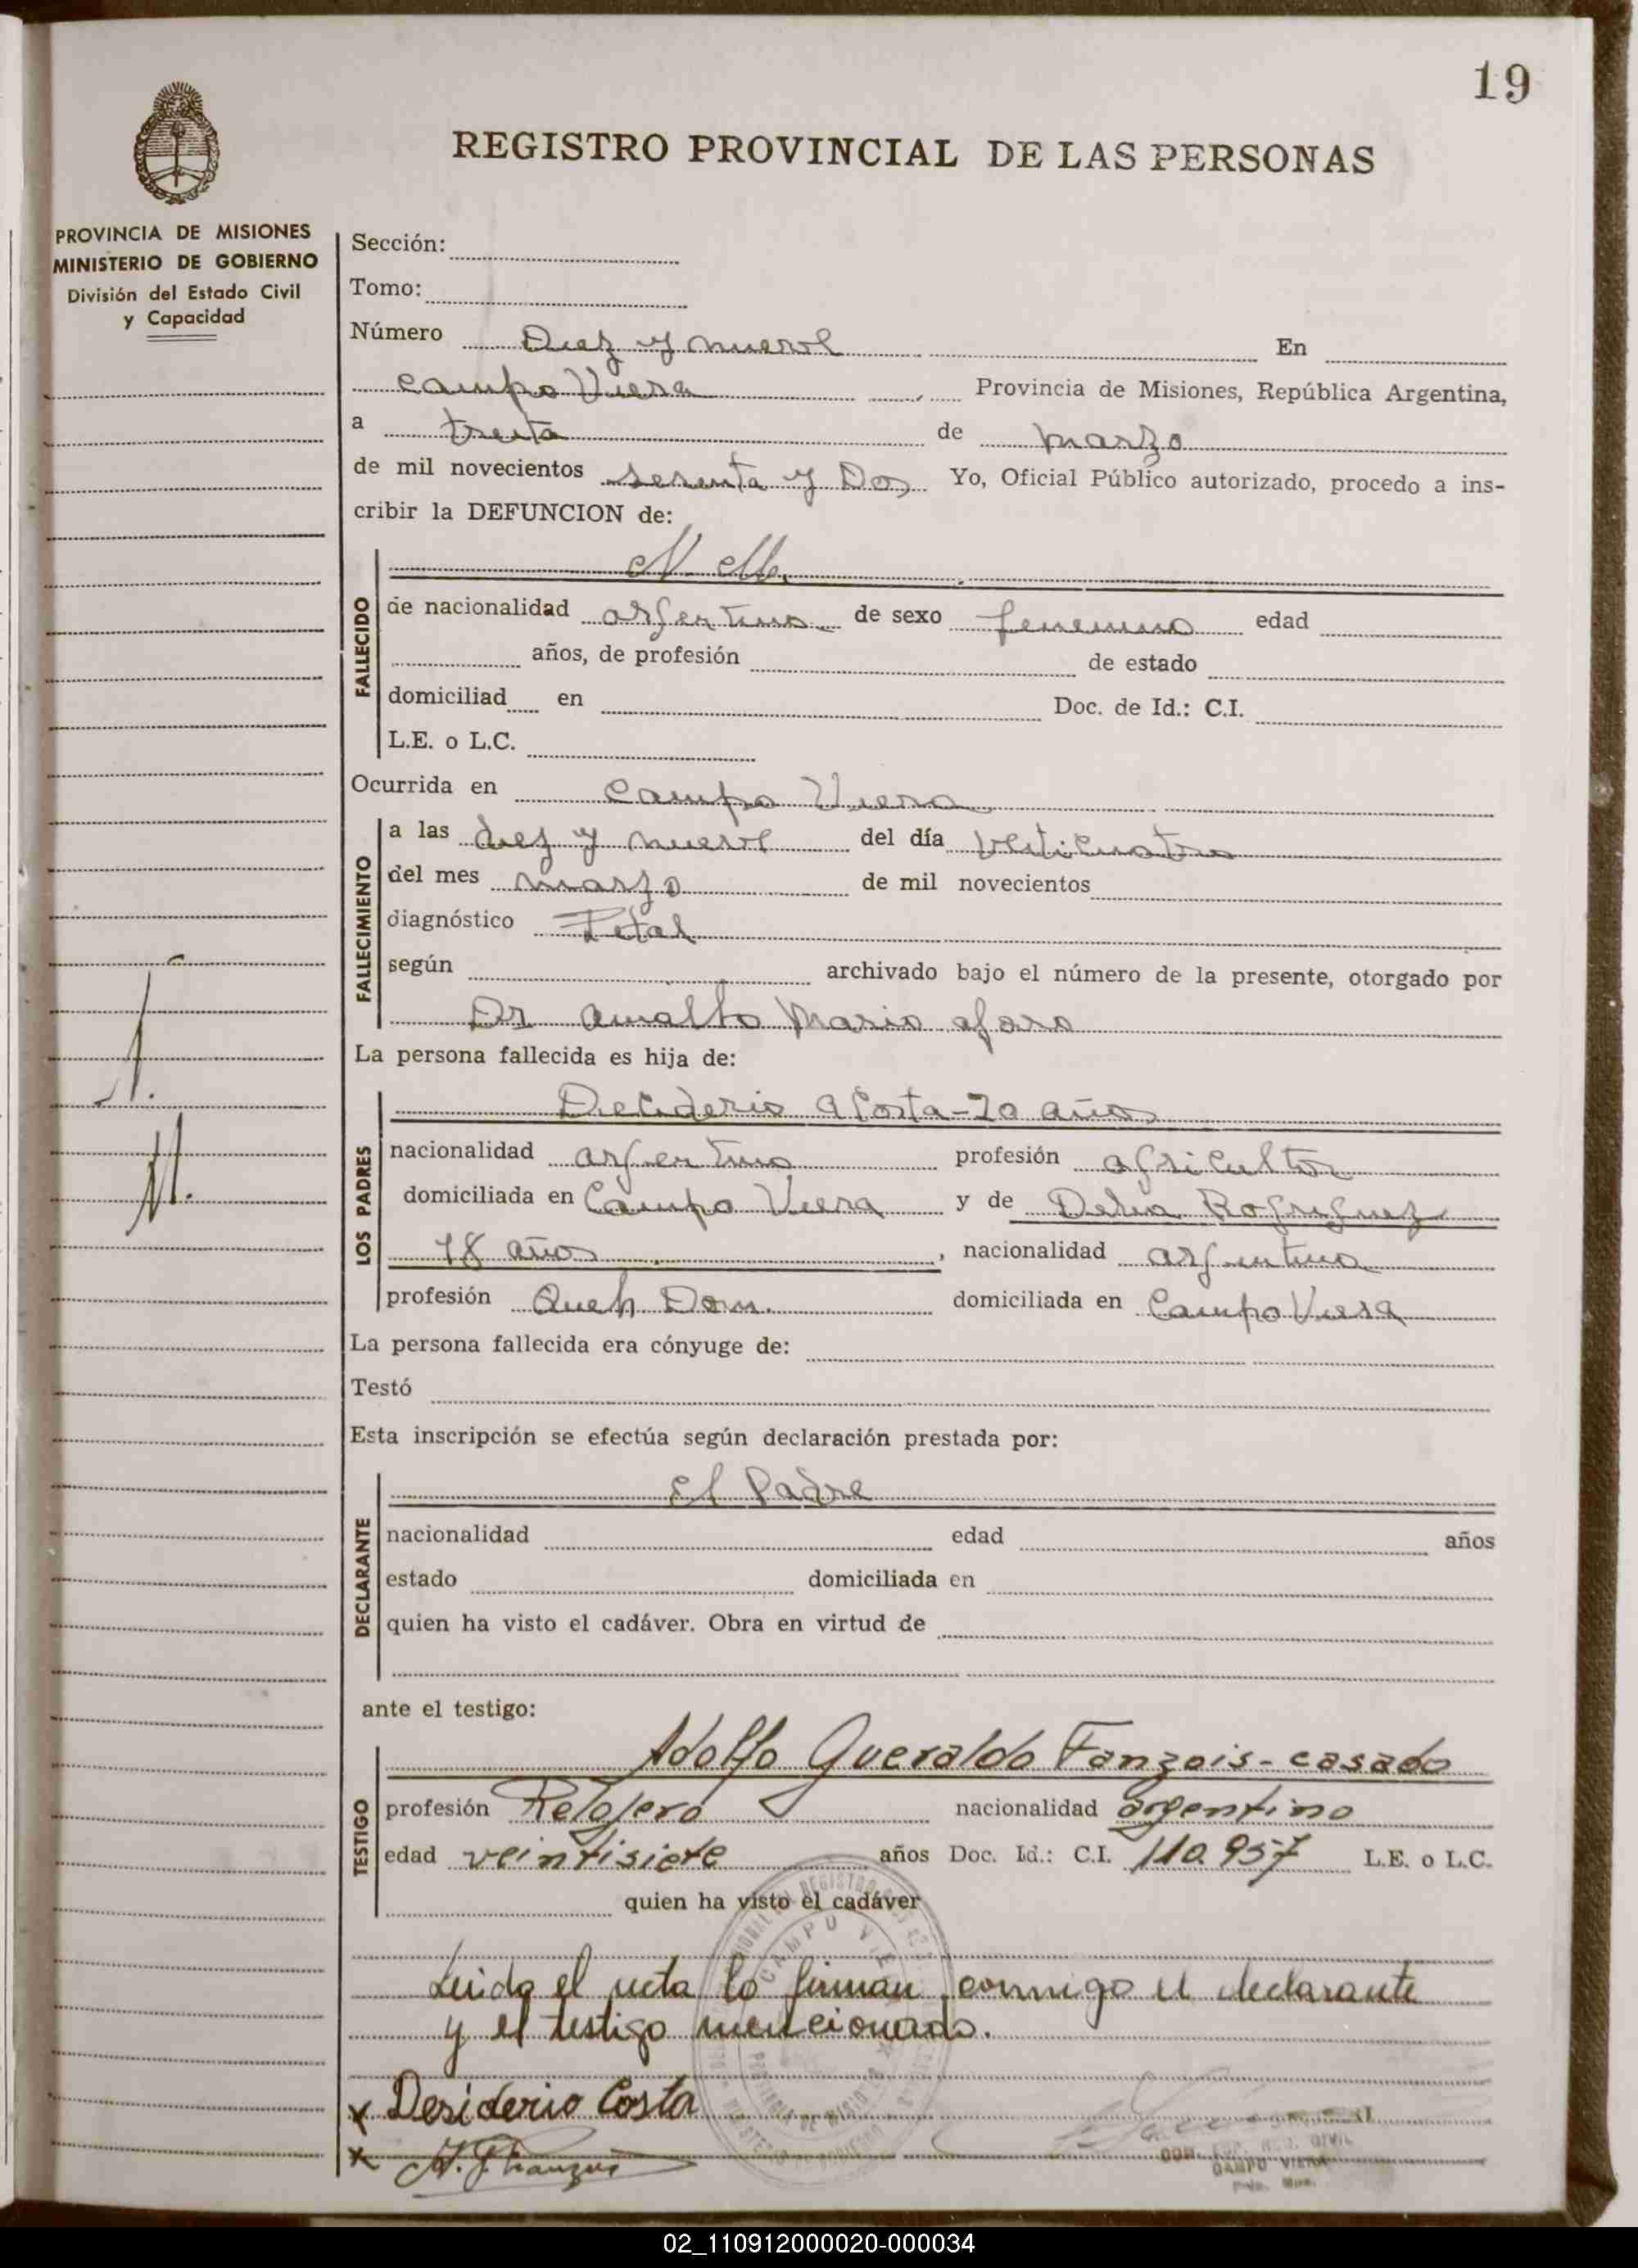 19
REGISTRO PROVINCIAL DE LAS PERSONAS
PROVINCIA DE MISIONES
MINISTERIO DE GOBIERNO
División del Estado Civil
y Capacidad
Sección:
Tomo:
Número Diez y nueve En
Campo Viera Provincia de Misiones, República Argentina,
a treita de marzo
de mil novecientos setenta y Dos Yo, Oficial Público autorizado, procedo a ins-
cribir la DEFUNCION de:
N
FALLECIDO
de nacionalidad argentino de sexo femenino edad
años, de profesión de estado
domiciliad en Doc. de Id.: C.I.
L.E. o L.C.
Ocurrida en Campo Viera
FALLECIMIENTO
a las diez y nueve del día
del mes marzo de mil novecientos
diagnóstico Fetal
según archivado bajo el número de la presente, otorgado por
Dr Mario
La persona fallecida es hija de:
LOS PADRES
acosta-20 años
nacionalidad argentino profesión agricultor
domiciliada en Campo Viera y de Delia
18 años , nacionalidad argentina
profesión Queh. Dom. domiciliada en Campo Viera
La persona fallecida era cónyuge de:
Testó
Esta inscripción se efectúa según declaración prestada por:
DECLARANTE
El Padre
nacionalidad edad años
estado domiciliada en
quien ha visto el cadáver. Obra en virtud de
ante el testigo:
TESTIGO
Adolfo Gueraldo Fanzois-casado
profesión Relojero nacionalidad argentino
edad veintisiete años Doc. Id.: C.I. 110.957 L.E. o L.C.
quien ha visto el cadáver
Leida el acta lo firman conmigo el declarante
y el testigo mencionado.
x Desiderio Costa
x
CAMPO VIERA
02_110912000020-000034